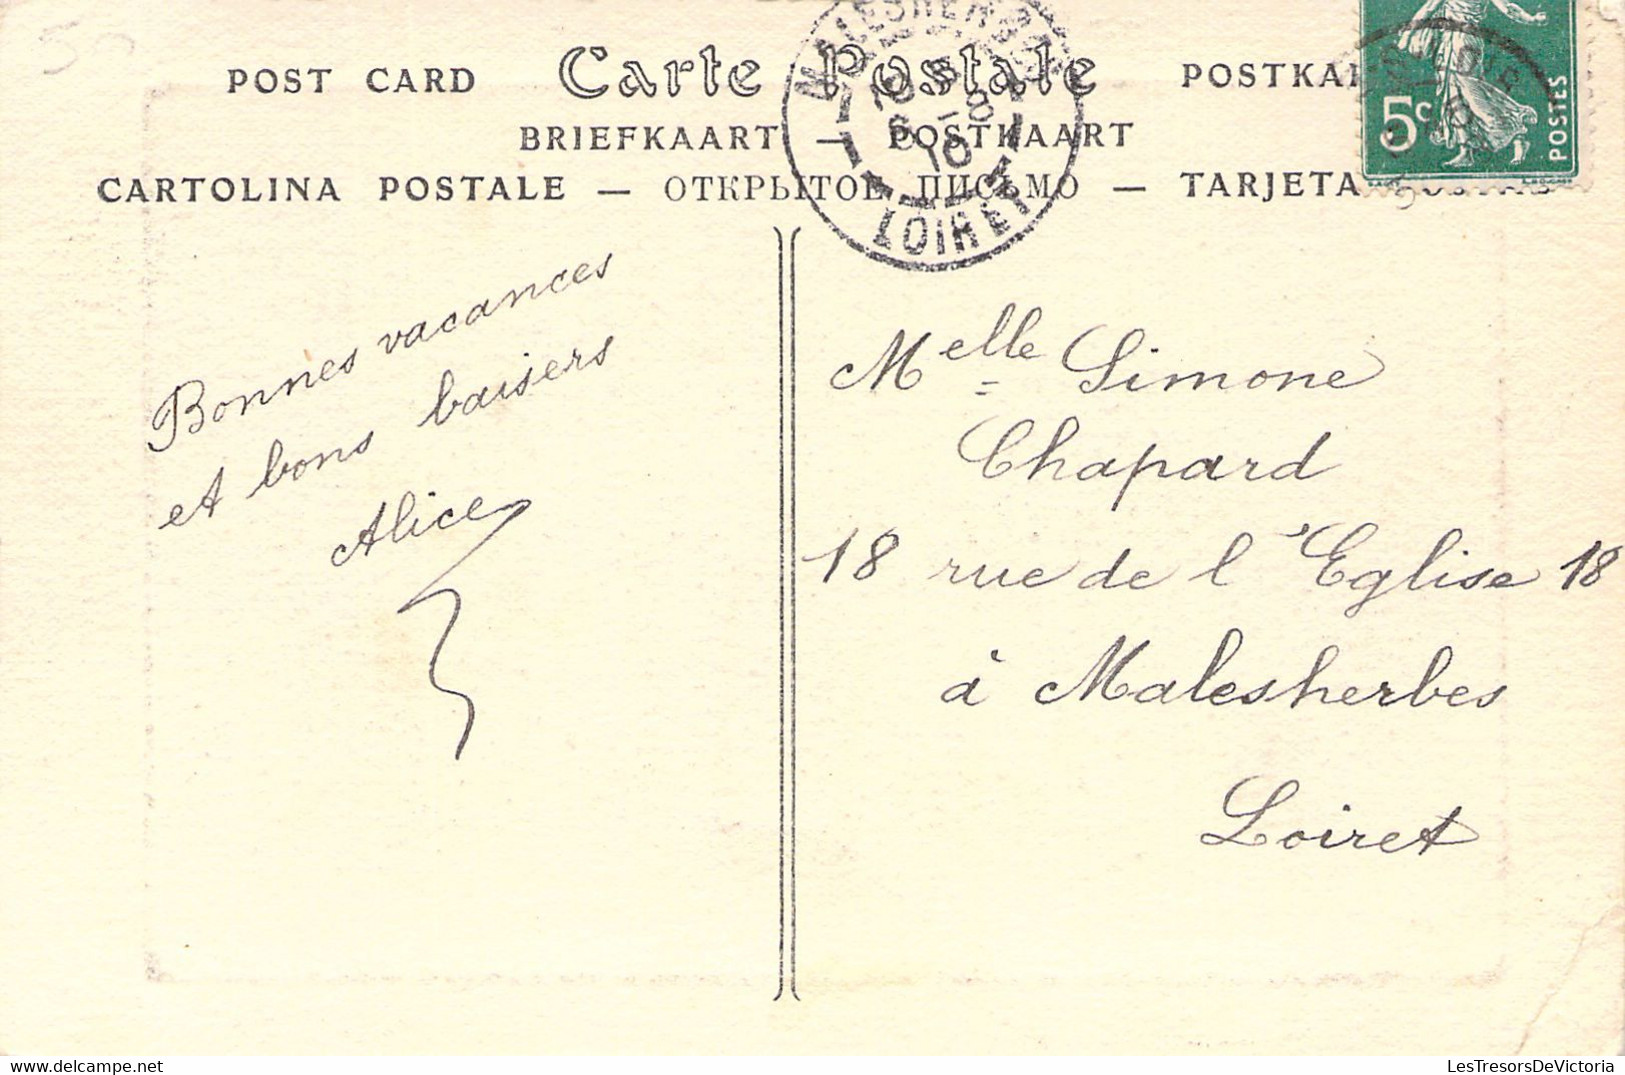 50
POST CARD Carte Postale
BRIEFKAART — POSTKAART
CARTOLINA POSTALE — ОТКРЫТОЕ ПИСЬМО — TARJETA
MALESHERBES
10
6 -8
10
LOIRET
5c
POSTES
Bonnes vacances
et bons baisers
Alice
Melle Simone
Chapard
18 rue de l'Eglise 18
à Malesherbes
Loiret
delcampe.net
LesTresorsDeVictoria